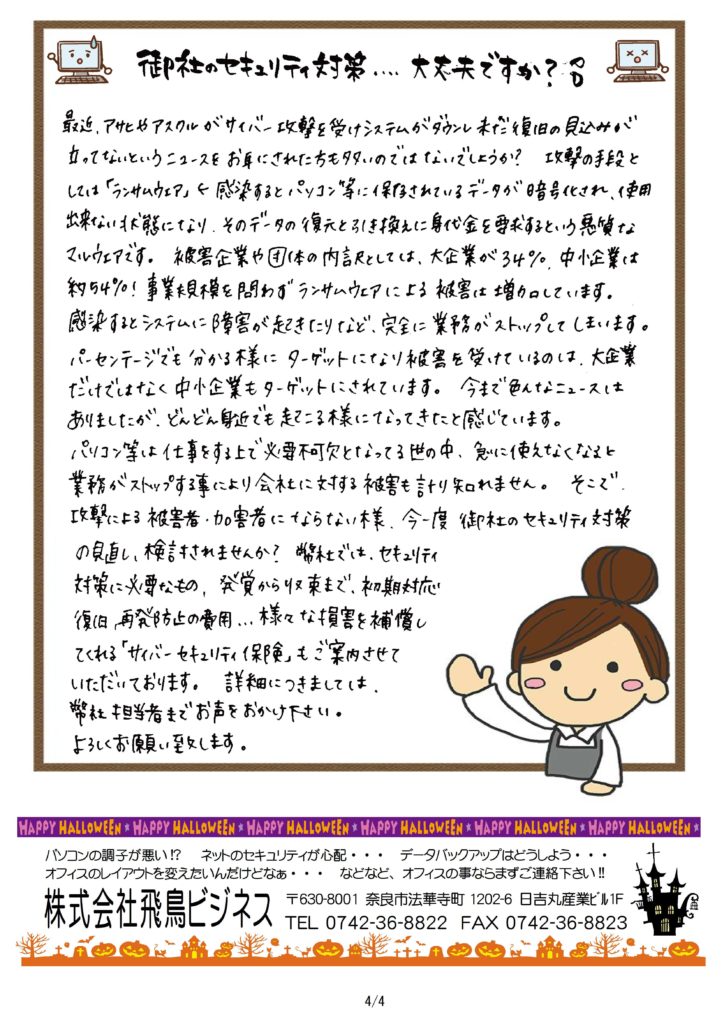 御社のセキュリティ対策.... 大丈夫ですか?
最近、アサヒやアスクルがサイバー攻撃を受けシステムがダウンし未だ復旧の見込みが
立ってないというニュースをお耳にされた方も多いのではないでしょうか? 攻撃の手段と
しては「ランサムウェア」← 感染するとパソコン等に保存されているデータが暗号化され、使用
出来ない状態になり、そのデータの復元と引き換えに身代金を要求するという悪質な
マルウェアです。 被害企業や団体の内訳としては、大企業が34%、中小企業は
約54%! 事業規模を問わずランサムウェアによる被害は増加しています。
感染するとシステムに障害が起きたりなど、完全に業務がストップしてしまいます。
パーセンテージでも分かる様に ターゲットになり被害を受けているのは、大企業
だけではなく中小企業もターゲットにされています。 今まで色んなニュースは
ありましたが、どんどん身近でも起こる様になってきたと感じています。
パソコン等は仕事をする上で必要不可欠となってる世の中、急に使えなくなると
業務がストップする事により会社に対する被害も計り知れません。 そこで、
攻撃による被害者・加害者にならない様、今一度 御社のセキュリティ対策
の見直し、検討されませんか? 弊社では、セキュリティ
対策に必要なもの、発覚から収束まで、初期対応
復旧、再発防止の費用...様々な損害を補償し
てくれる「サイバーセキュリティ保険」もご案内させて
いただいております。 詳細につきましては、
弊社担当者までお声をおかけ下さい。
よろしくお願い致します。
HAPPY HALLOWEEN ★ HAPPY HALLOWEEN ★ HAPPY HALLOWEEN ★ HAPPY HALLOWEEN ★ HAPPY HALLOWEEN ★ HAPPY HALLOWEEN ★
パソコンの調子が悪い!? ネットのセキュリティが心配・・・ データバックアップはどうしよう・・・
オフィスのレイアウトを変えたいんだけどなぁ・・・ などなど、オフィスの事ならまずご連絡下さい!!
株式会社飛鳥ビジネス 〒630-8001 奈良市法華寺町 1202-6 日吉丸産業ビル1F
TEL 0742-36-8822 FAX 0742-36-8823
4/4